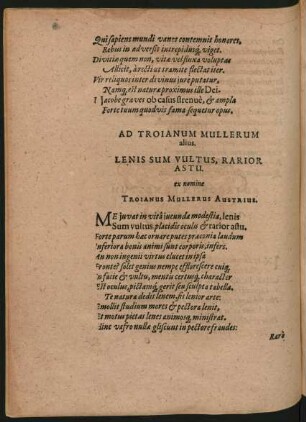 Qui sapiens mundi vanos contemnit honores,
Rebus in adversis intrepidusq; viget.
Divitiæ quem non, vitæ vesana voluptas
Allicit, à recti ut tramite flectat iter.
Vir reliquos inter divinus iure putatur,
Namq; est natura proximus ille Dei.
I Jacobe graves ob casus strenuè, & ampla
Forte tuum quadvis fama sequetur opus.
AD TROIANUM MULLERUM
alios.
LENIS SUM VULTUS, RARIOR
ASTU.
ex nomine
TROIANUS MULLERUS AUSTRIUS.
ME juvat in virâ iucunda modestia, lenis
Sum vultus, placidis oculis & rarior astu.
Forte parum hæc ornare putes præconia laudum
Inferiora bonis animi sunt corporis, infers.
An non ingenii virtus elucet in ipsa
Fronte? solet genius nempe efflorescere
in facie & vultu, mentis certusq; character
Est oculus, pictamq; gerit seu sculpta tabella.
Te natura dedit lenem, sis lenior arte:
Emollit studium mores & pectora lenis,
Et motus pietas lenes animosq; ministrat.
Sint vafro nullæ gliscunt in pectore fraudes:
Rarò